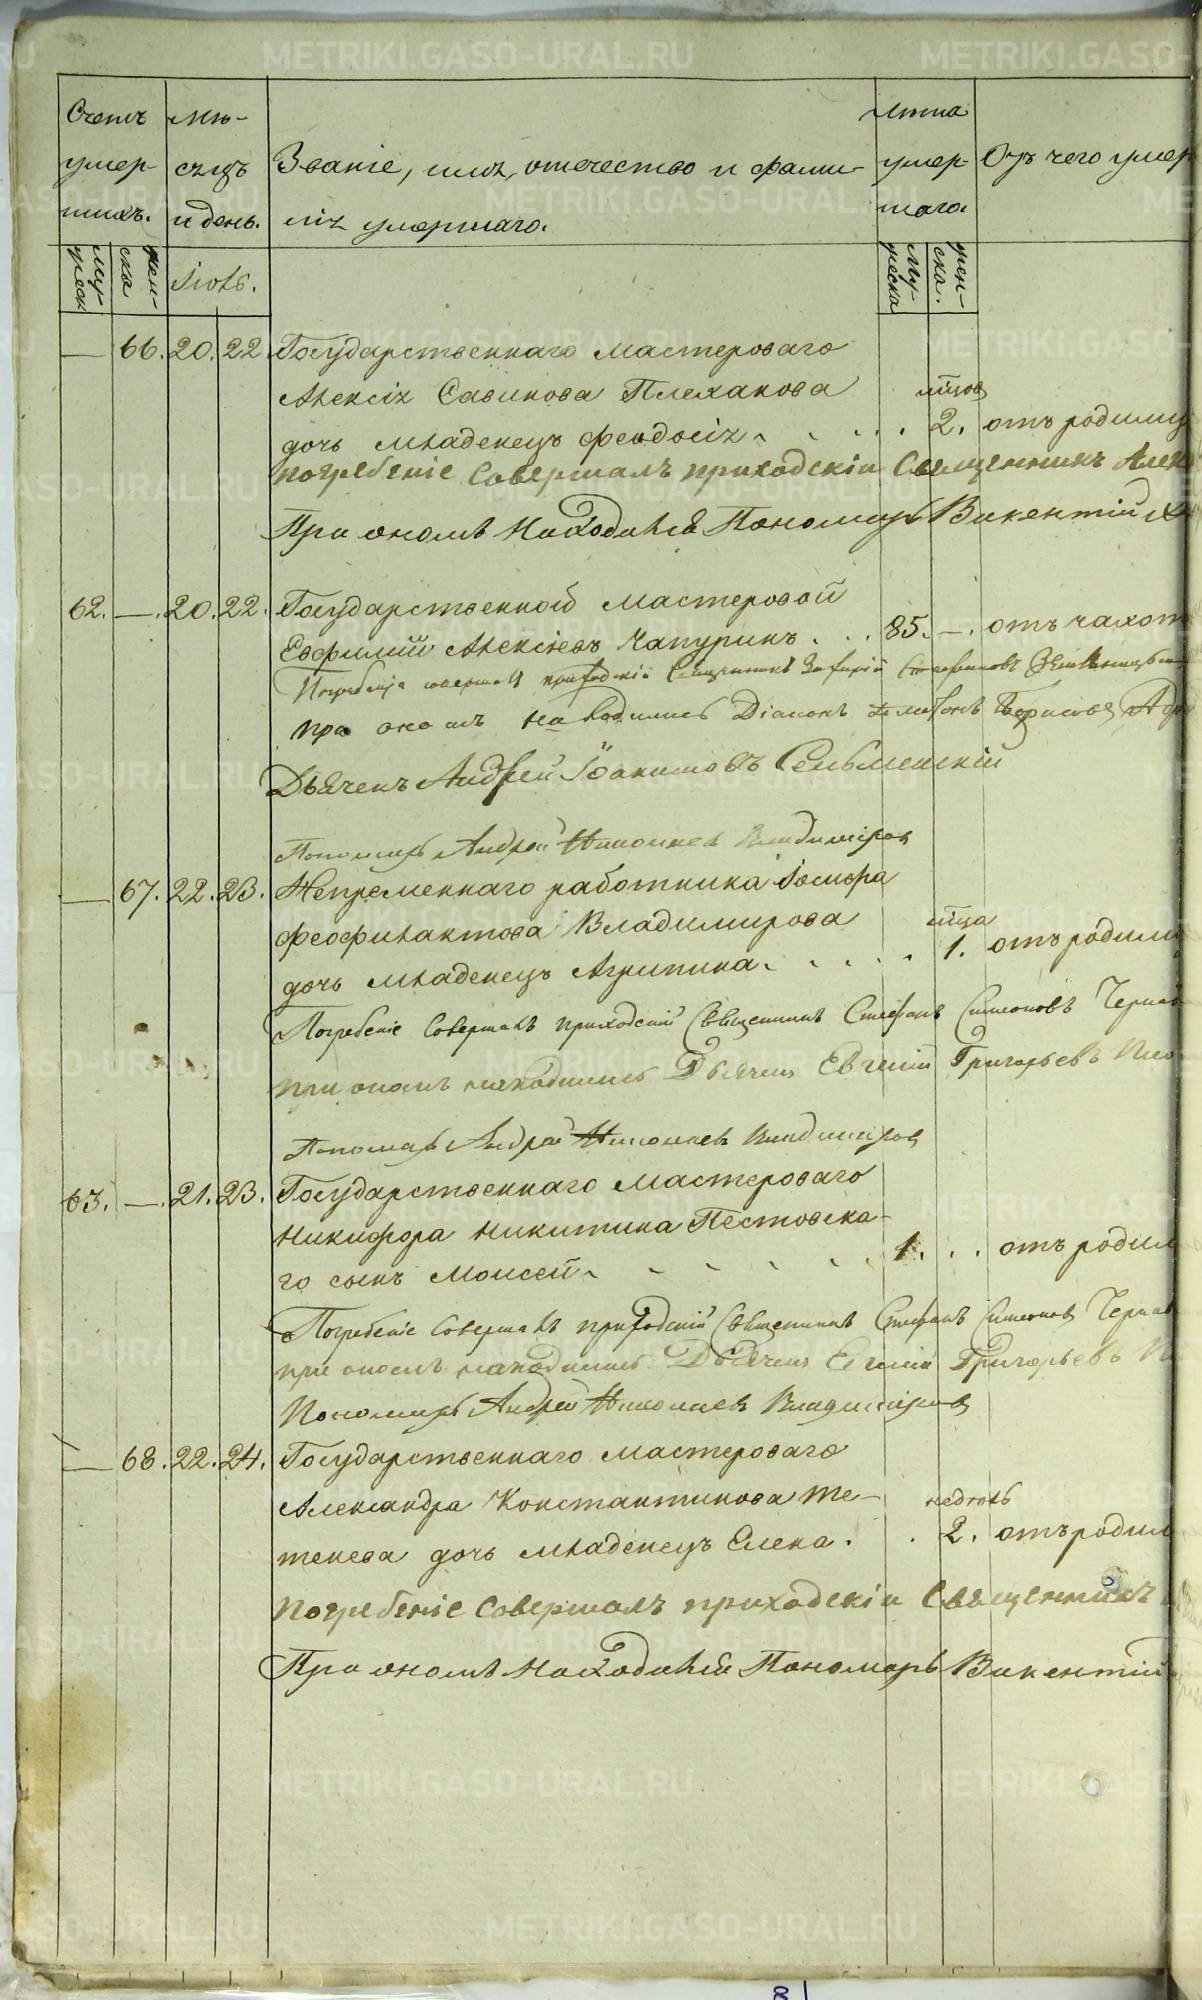 METRIKI.GASO-URAL.RU
Счетъ умер- шихъ.
Мѣ- сяцъ и день.
Званіе, имя, отечество и фами-
лія умершаго.
Лѣта умер- шаго.
Отъ чего умер
муж еска
жен- ска
Іюль.
му- жеска
жен- ска.
— 66. 20. 22 Государственнаго мастероваго
Алексія Савинова Плеханова мѣцов
дочь младенецъ Феодосія. . . . . 2. отъ родимц
погребеніе Совершалъ приходскіи Священникъ Алек
При ономъ Находился Пономарь Викентій
62. —. 20. 22. Государственной мастеровой
Евфимій Алексіевъ Чапуринъ. . . 85. —. отъ чахот
Погребеніе совершалъ приходскій Священникъ
при ономъ находились Діаконъ Борисов
Дьячекъ Андрей Іоакимовъ Сельменскій
Пономарь Андрей Николаев Владиміров
— 67. 22. 23. Непремѣннаго работника Іосифа
Феофилактова Владимирова мѣца
дочь младенецъ Агрипина. . . . . 1. отъ родими
Погребеніе Совершалъ приходскій Священникъ Стефанъ Симеоновъ Черн
при ономъ находились Дьячекъ Евгеній Григорьевъ
Пономарь Андрей Николаев Владиміров
63. —. 21. 23. Государственнаго мастероваго
Никифора Никитина Пестовска-
го сынъ Моисей. . . . . . 1. . . отъ родим
Погребеніе Совершалъ приходскій Священникъ Стефанъ Симеонов Черн
при ономъ находились Дьячекъ Евгеній Григорьевъ
Пономарь Андрей Николаев Владиміров
— 68. 22. 24. Государственнаго мастероваго
Александра Константинова Те- недѣль
тенева дочь младенецъ Елена. . 2. отъ родим
погребеніе Совершалъ приходскіи Священникъ
При ономъ Находился Пономарь Викентій